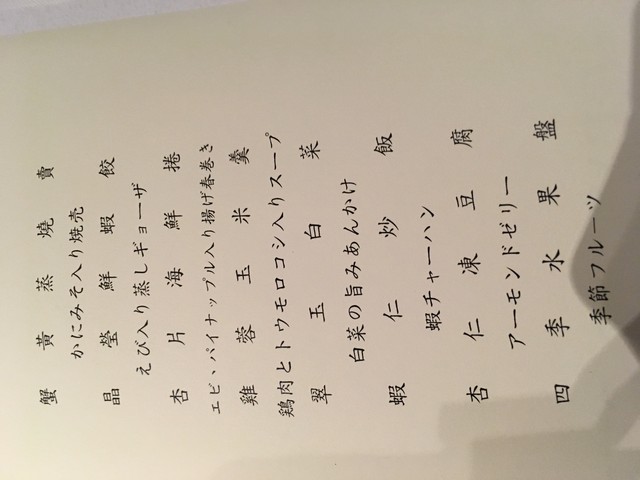 蟹黄蒸燒賣
かにみそ入り焼売
晶瑩鮮蝦餃
えび入り蒸しギョーザ
杏片海鮮捲
エビ、パイナップル入り揚げ春巻き
雞蓉玉米羹
鶏肉とトウモロコシ入りスープ
翠玉白菜
白菜の旨みあんかけ
蝦仁炒飯
蝦チャーハン
杏仁凍豆腐
アーモンドゼリー
四季水果盤
季節フルーツ